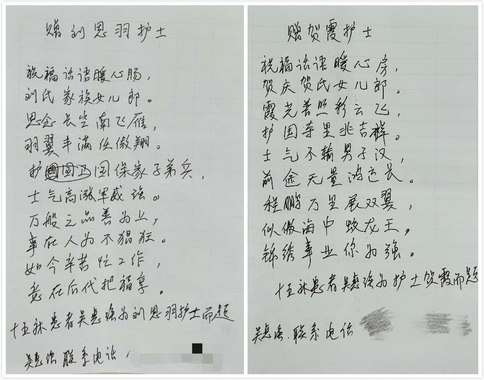 赠刘思羽护士
祝福话语暖心肠，
刘氏家族女儿郎。
思念长空南飞雁，
羽翼丰满任傲翔。
护国保家子弟兵，
士气高涨军威强。
万般之品善为业，
事在人为不猖狂。
如今辛苦忙工作，
竟在后代把福享。
十五床患者吴惠德为刘思羽护士而题
吴惠德联系电话：
赠贺霞护士
祝福话语暖心房，
贺庆贺氏女儿郎。
霞光普照彩云飞，
护国寺里兆吉祥。
士气不输男子汉，
前途无量鸿运长。
程鹏万里展双翼，
似傲海中蛟龙王。
锦绣事业你为强。
十五床患者吴惠德为护士贺霞而题
吴惠德.联系电话